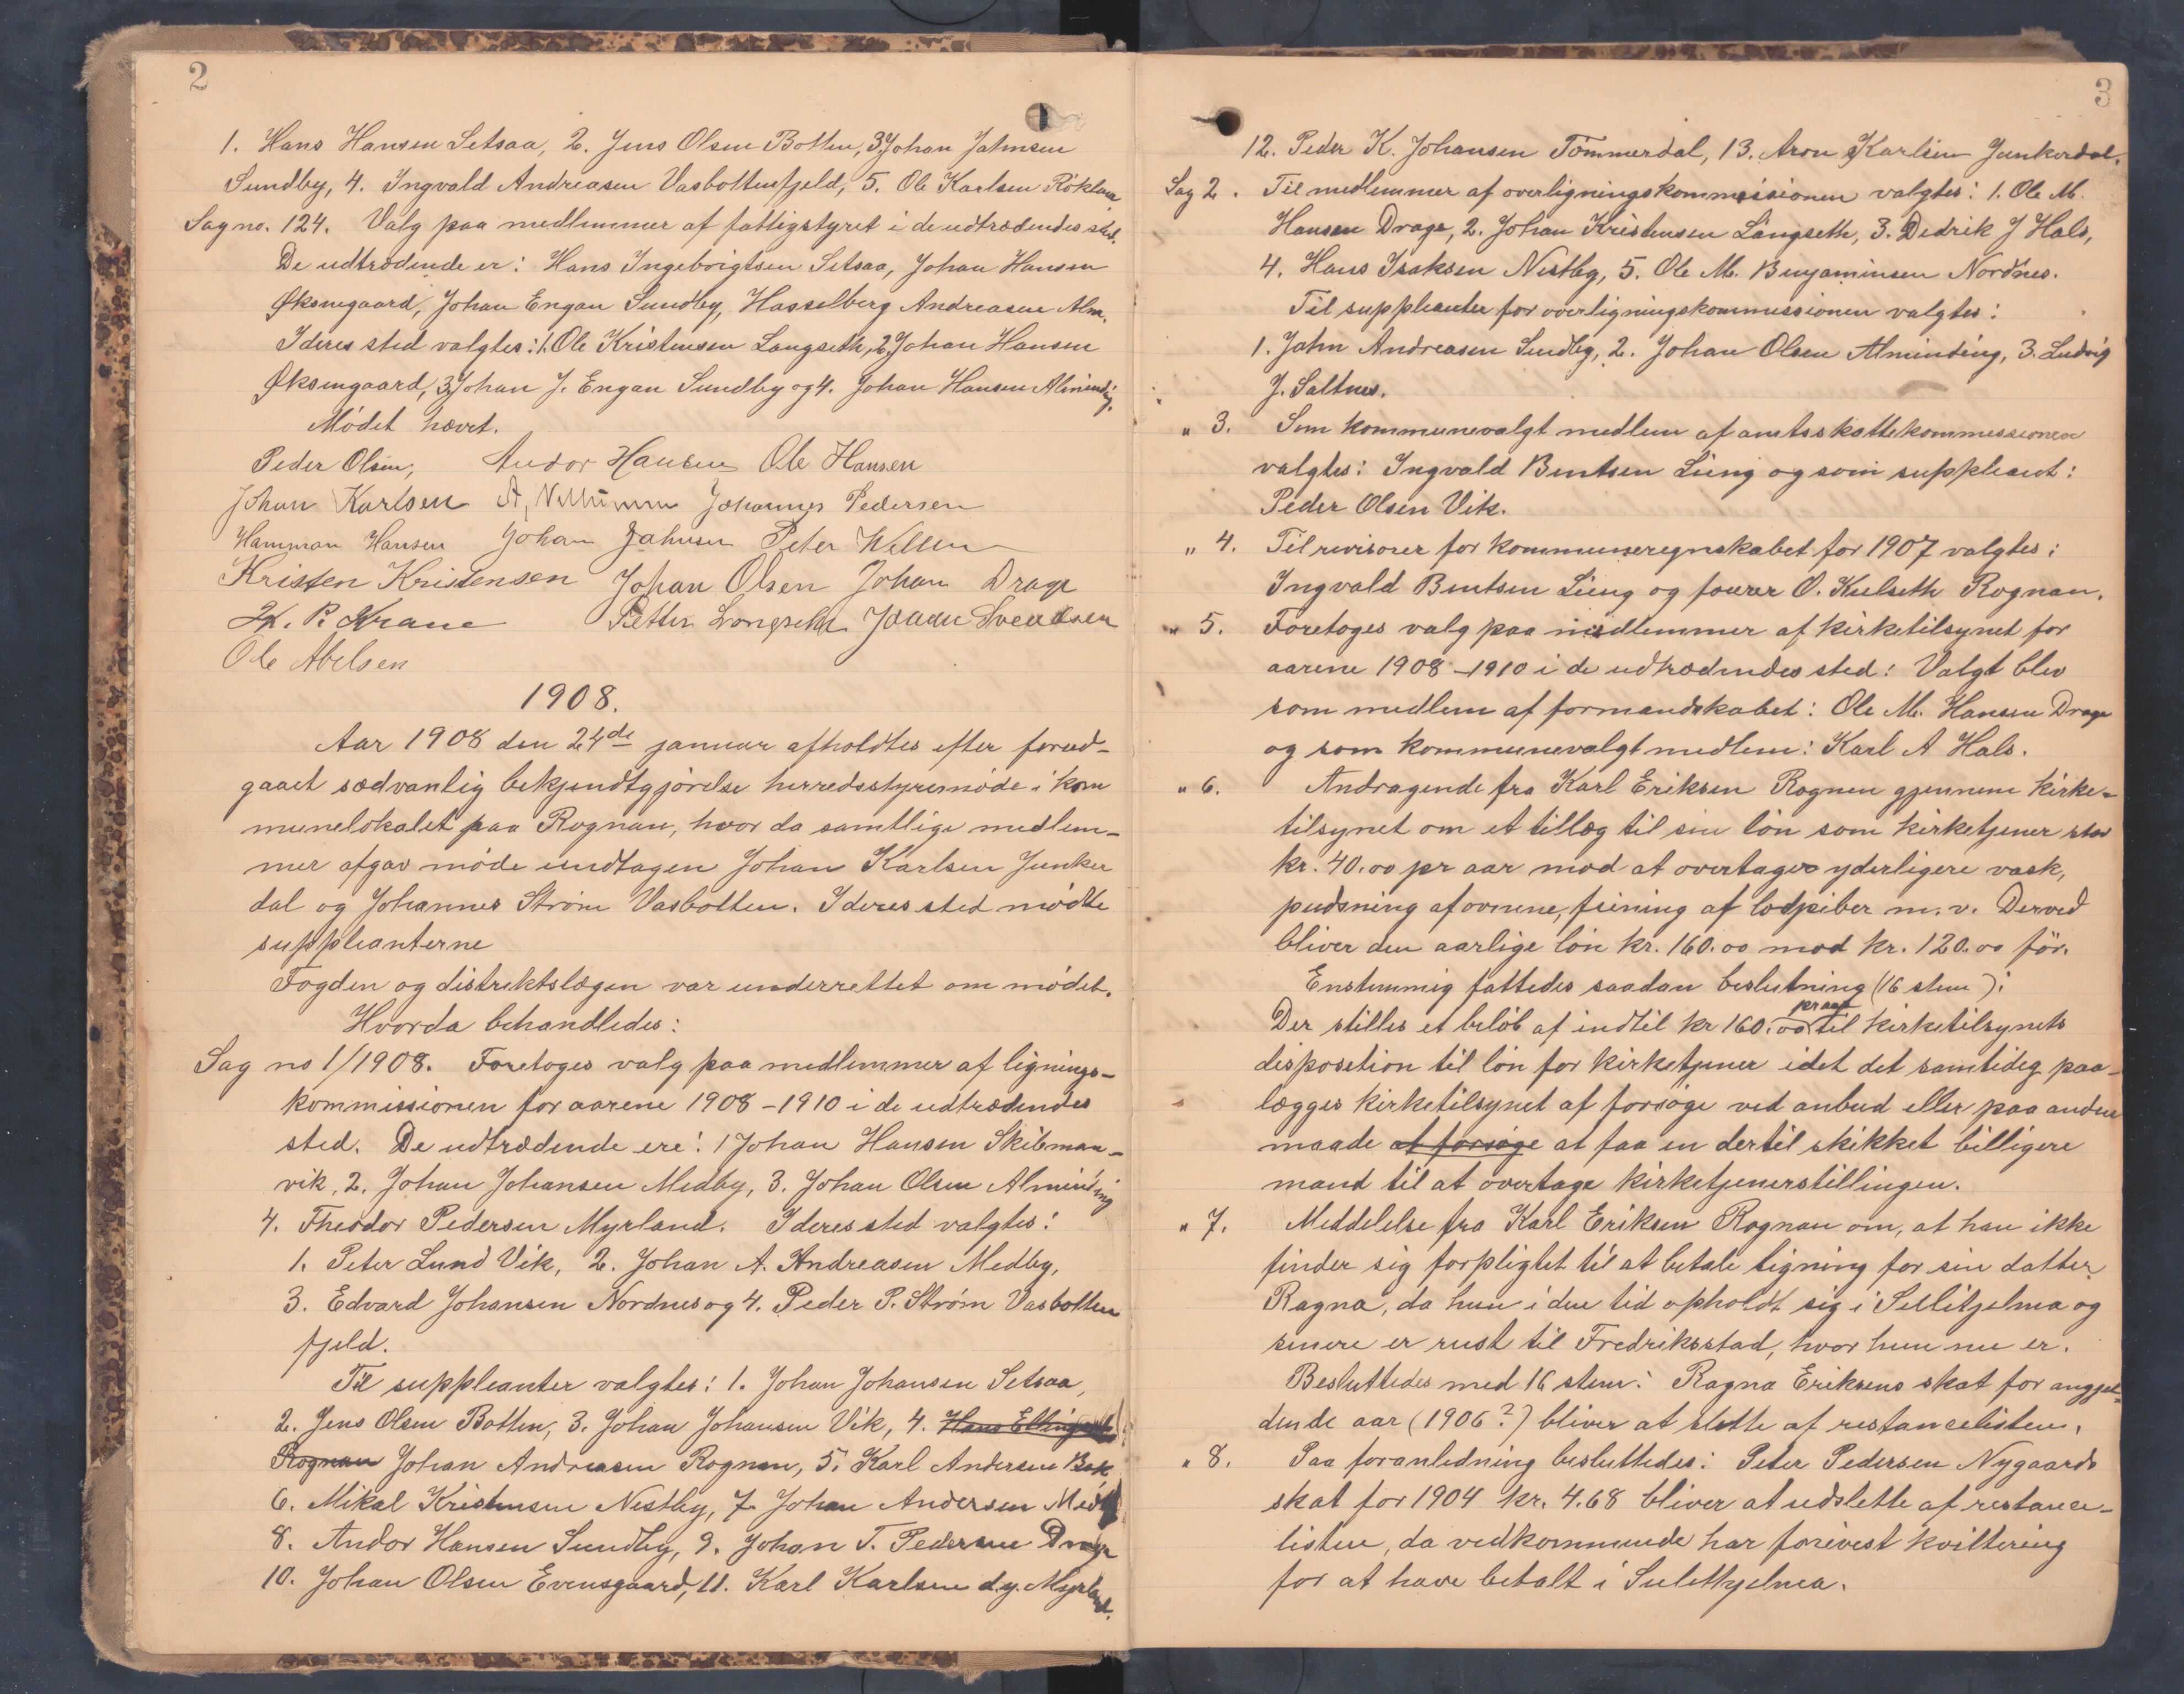 2
1. Hans Hansen Setsaa, 2. Jens Olsen Botten, 3. Johan Jahnsen
Sundby, 4. Ingvald Andreasen Vasbottenfjeld, 5. Ole Karlsen Röklan
Sag no. 124. Valg paa medlemmer af fattigstyret i de udtrædendes sted.
De udtrædende er: Hans Ingebrigtsen Setsaa, Johan Hansen
Øksnegaard, Johan Engan Sundby, Hasselberg Andreasen Alm.
I deres sted valgtes: 1. Ole Kristensen Langseth, 2. Johan Hansen
Øksnegaard, 3. Johan J. Engan Sundby og 4. Johan Hansen Alminding.
Mödet hævet.
Peder Olsen, Andor Hansen Ole Hansen
Johan Karlsen A, Johannes Pedersen
Hamman Hansen Johan Jahnsen Peter Willen
Kristen Kristensen Johan Olsen Johan Drage
K. P. Krane Petter Longseth Svendsen
Ole Abelsen
1908.
Aar 1908 den 24de januar afholdtes efter forud-
gaaet sædvanlig bekjendtgjörelse herredsstyremöde i kom
munelokalet paa Rognan, hvor da samtlige medlem-
mer afgav möde undtagen Johan Karlsen Junker
dal og Johannes Ström Vasbotten. I deres sted mödte
suppleanterne
Fogden og distriktslægen var underrettet om mödet.
Hvorda behandledes:
Sag no 1/1908. Foretoges valg paa medlemmer af lignings-
kommissionen for aarene 1908-1910 i de udtrædendes
sted. De udtrædende ere: 1 Johan Hansen Skibman-
vik, 2. Johan Johansen Medby, 3. Johan Olsen Alminding
4. Theodor Pedersen Myrland. I deres sted valgtes:
1. Peter Lund Vik, 2. Johan A. Andreasen Medby,
3. Edvard Johansen Nordnes og 4. Peder P. Ström Vasbotten
fjeld.
Til suppleanter valgtes: 1. Johan Johansen Setsaa,
2. Jens Olsen Botten, 3. Johan Johansen Vik, 4. Hans
Rognan Johan Andreasen Rognan, 5. Karl Andersen Bak
6. Mikal Kristensen Nestby, 7. Johan Andersen Medby
8. Andor Hansen Sundby, 9. Johan T. Pedersen Drage
10. Johan Olsen Evensgaard, 11. Karl Karlsen d.y. Myrland.
3
12. Peder K. Johansen Tömmerdal, 13. Aron Karlsen Junkerdal.
Sag 2. Til medlemmer af overligningskommissionen valgtes: 1. Ole M.
Hansen Drage, 2. Johan Kristensen Langseth, 3. Dedrik J Hals,
4. Hans Isaksen Nestby, 5. Ole M. Benjaminsen Nordnes.
Til suppleanter for overligningskommissionen valgtes:
1. Jahn Andreasen Sundby, 2. Johan Olsen Alminding, 3. Ludvig
J. Saltnes.
" 3. Som kommunevalgt medlem af amtsskattekommissionen
valgtes: Ingvald Bentsen Lieng og som suppleant:
Peder Olsen Vik.
" 4. Til revisorer for kommuneregnskabet for 1907 valgtes:
Ingvald Bentsen Lieng og fourer O. Kulseth Rognan.
" 5. Foretoges valg paa medlemmer af kirketilsynet for
aarene 1908-1910 i de udtrædendes sted: Valgt blev
som medlem af formandskabet: Ole M. Hansen Drage
og som kommunevalgt medlem: Karl A Hals.
" 6. Andragende fra Karl Eriksen Rognan gjennem kirke-
tilsynet om et tillæg til sin lön som kirketjener stor
kr. 40.00 pr aar mod at overtages yderligere vask,
pudsning af ovnene, feining af lodpiber m. v. Derved
bliver den aarlige lön kr. 160.00 mod kr. 120.00 för.
Enstemmig fattedes saadan beslutning (16 stem):
Der stilles et belöb af indtil kr 160.00 pr aar til kirketilsynets
disposition til lön for kirketjener idet det samtidig paa-
lægges kirketilsynet af forsöge ved anbud eller paa anden
maade at forsöge at faa en dertil skikket billigere
mand til at overtage kirketjenerstillingen.
" 7. Meddelelse fra Karl Eriksen Rognan om, at han ikke
finder sig forpligtet til at betale ligning for sin datter
Ragna, da hun i den tid opholdt sig i Sulitjelma og
senere er reist til Fredriksstad, hvor hun nu er.
Besluttedes med 16 stem: Ragna Eriksens skat for angjel-
dende aar (1906?) bliver at slette af restancelisten.
" 8. Paa foranledning besluttedes: Peter Pedersen Nygaards
skat for 1904 kr. 4.68 bliver at udslette af restance-
listen, da vedkommende har forevist kvittering
for at have betalt i Sulithjelma.